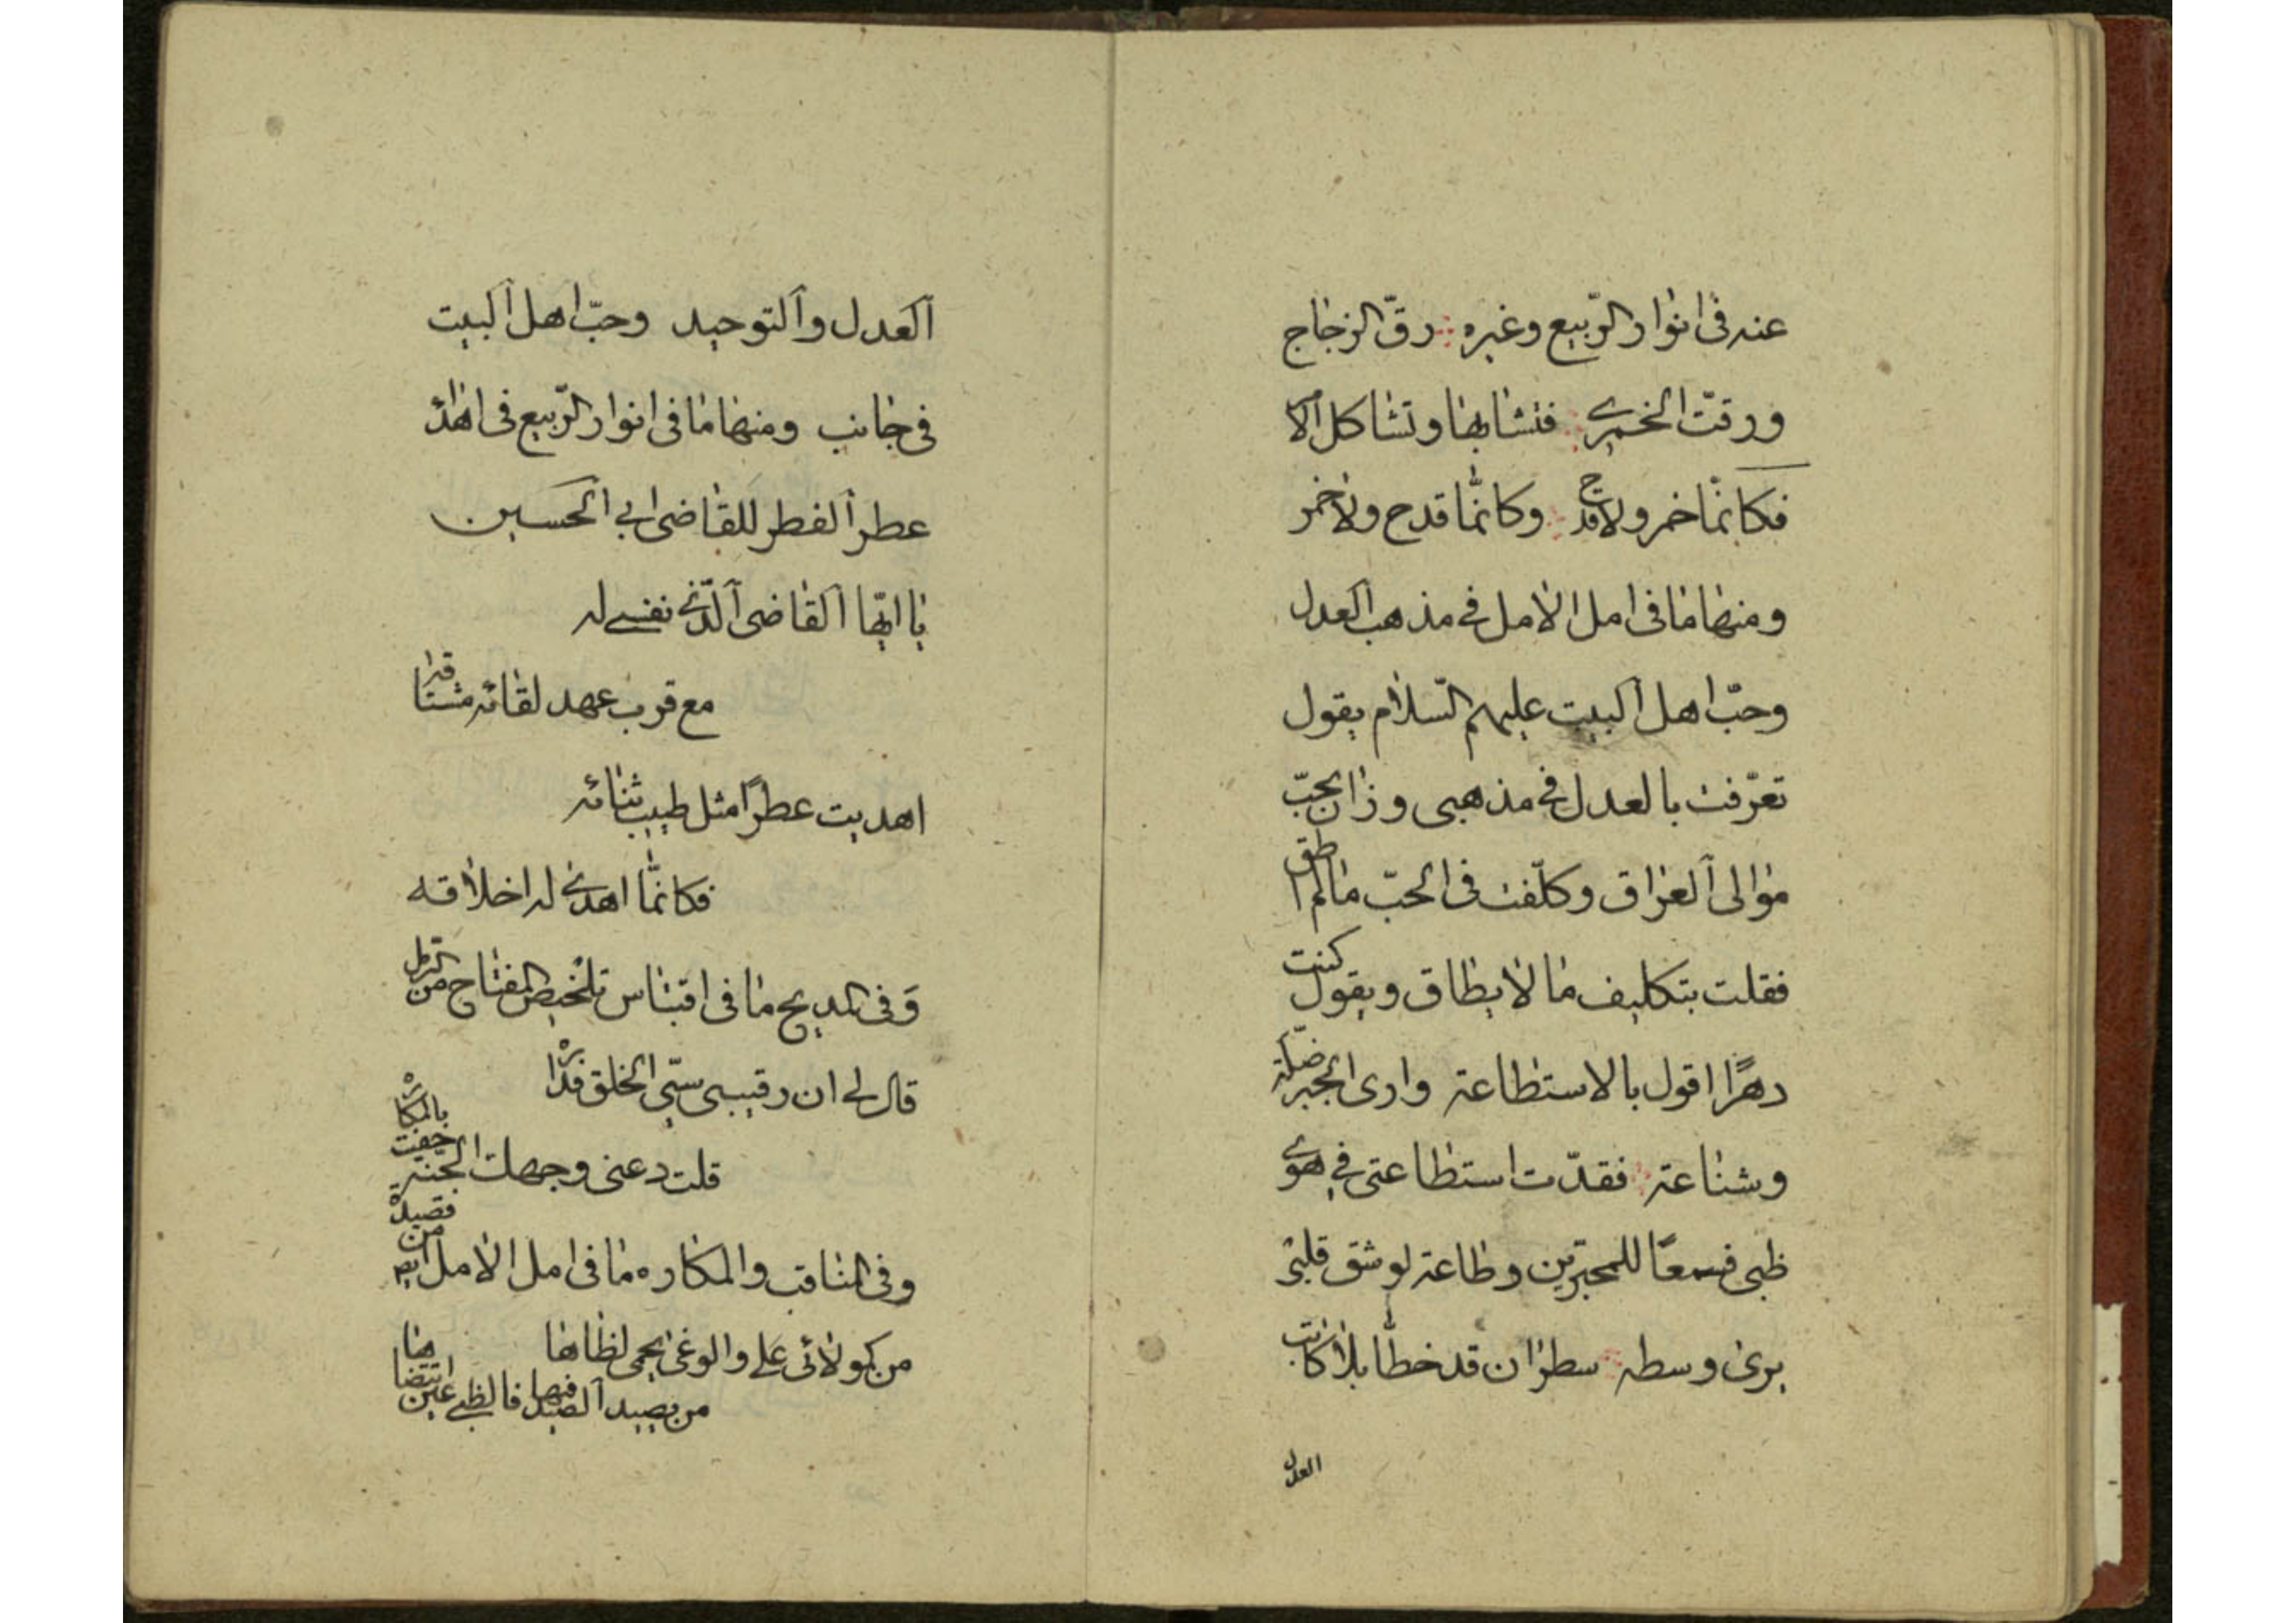 عنه فی انوار الرّبیع وغیره رقّ الزجاج
ورقّت الخمری فتشابها وتشاکل الامر
فکانّما خمر ولا قدح وکانّما قدح ولا خمر
ومنها ما فی امل الامل فے مذهب العدل
وحبّ اهل البیت علیهم السّلام یقول
تعرّفت بالعدل فے مذهبی وزان بحبّ
موالی العراق وکلّفت فی الحبّ ما لم اطق
فقلت بتکلیف ما لا یطاق ویقول کنت
دهرًا اقول بالاستطاعة واری الجبر ضلّة
وشناعة فقدّت استطاعتی فے هوی
ظبی فسمعًا للمجبّرین وطاعة لو شق قلبی
یری وسطه سطران قد خطّا بلا کاتب
العدل
العدل والتوحید وحبّ اهل البیت
فی جانب ومنها ما فی انوار الرّبیع فی اهداء
عطر الفطر للقاضی ابی الحسین
یا ایّها القاضی الّذی نفسے له
مع قرب عهد لقائه مشتاقه
اهدیت عطرًا مثل طیب ثنائه
فکانّما اهدی له اخلاقه
وَفی المدیح ما فی اقتباس تلخیص المفتاح من الرمل
قال لے ان رقیبی سیّئ الخلق فداره
قلت دعنی وجهک الجنة حفت بالمکاره
وفی المناقب والمکاره ما فی امل الامل ایضا من قصیدة
من کمولائی علے والوغی یحمی لظاها
من یصید الصید فیها فالظبے عین انتضاها